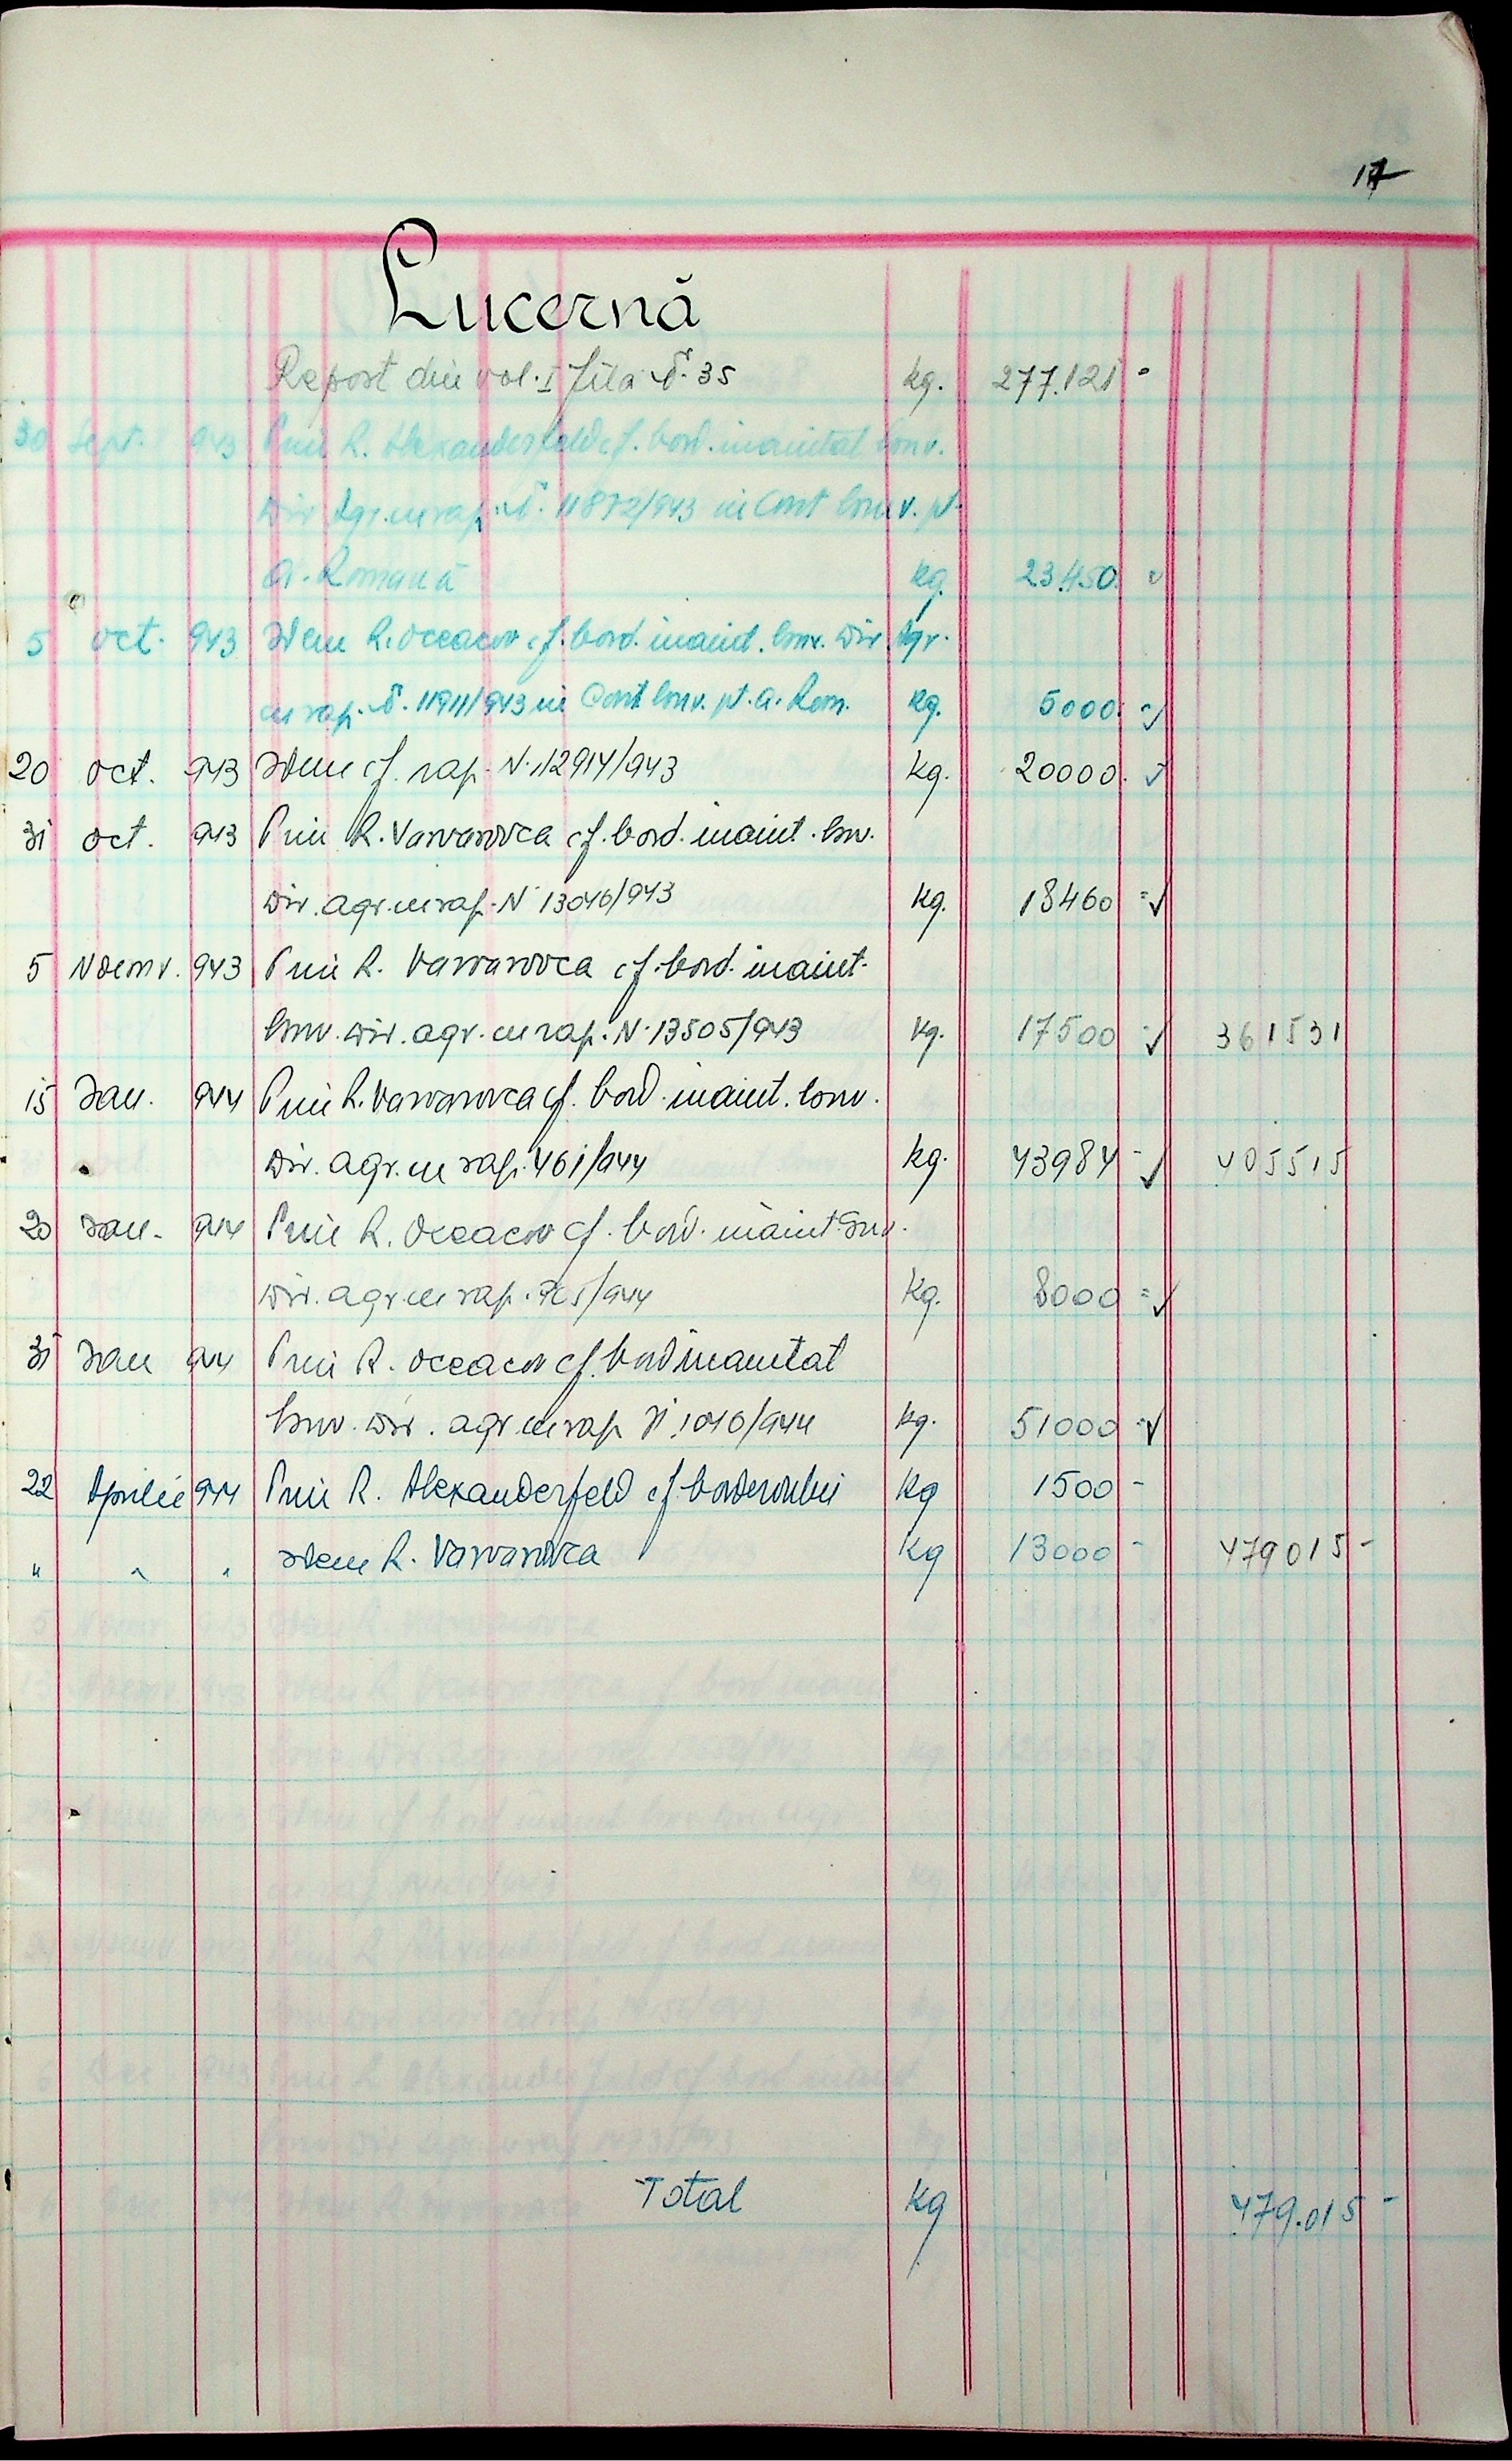 17
Lucernă
Report din vol. I fila № 35 kg. 277.121 -
30 Sept. 943 Prin R. Alexanderfeld cf. bord. inaintat Conv.
Dir. Agr. cu rap. № 11872/943 in Cont Conv. pt.
A. Română kg. 23.450 -
5 Oct. 943 Idem R. Oceacov cf. bord. inaint. Conv. Dir. Agr.
cu rap. № 11911/943 in Cont Conv. pt. A. Rom. kg. 5000 -
20 Oct. 943 Idem cf. rap. N. 12914/943 kg. 20000 -
31 Oct. 943 Prin R. Varvarovca cf. bord. inaint. Conv.
Dir. agr. cu rap. N 13046/943 kg. 18460 =
5 Noemv. 943 Prin R. Varvarovca cf. bord. inaint.
Conv. Dir. agr. cu rap. N. 13505/943 kg. 17500 - 361531
15 Ian. 944 Prin R. Varvarovca cf. bord. inaint. Conv.
Dir. agr. cu rap. 461/944 kg. 43984 - 405515
20 Ian. 944 Prin R. Oceacov cf. bord. inaint. Conv.
Dir. agr. cu rap. /944 kg. 8000 =
31 Ian 944 Prin R. Oceacov cf. bord inaintat
Conv. Dir. agr cu rap N. 1040/944 kg. 51000 -
22 Aprilie 944 Prin R. Alexanderfeld cf. borderoului kg 1500 -
" " " Idem R. Varvarovca kg 13000 - 479015 -
Total kg 479.015 -